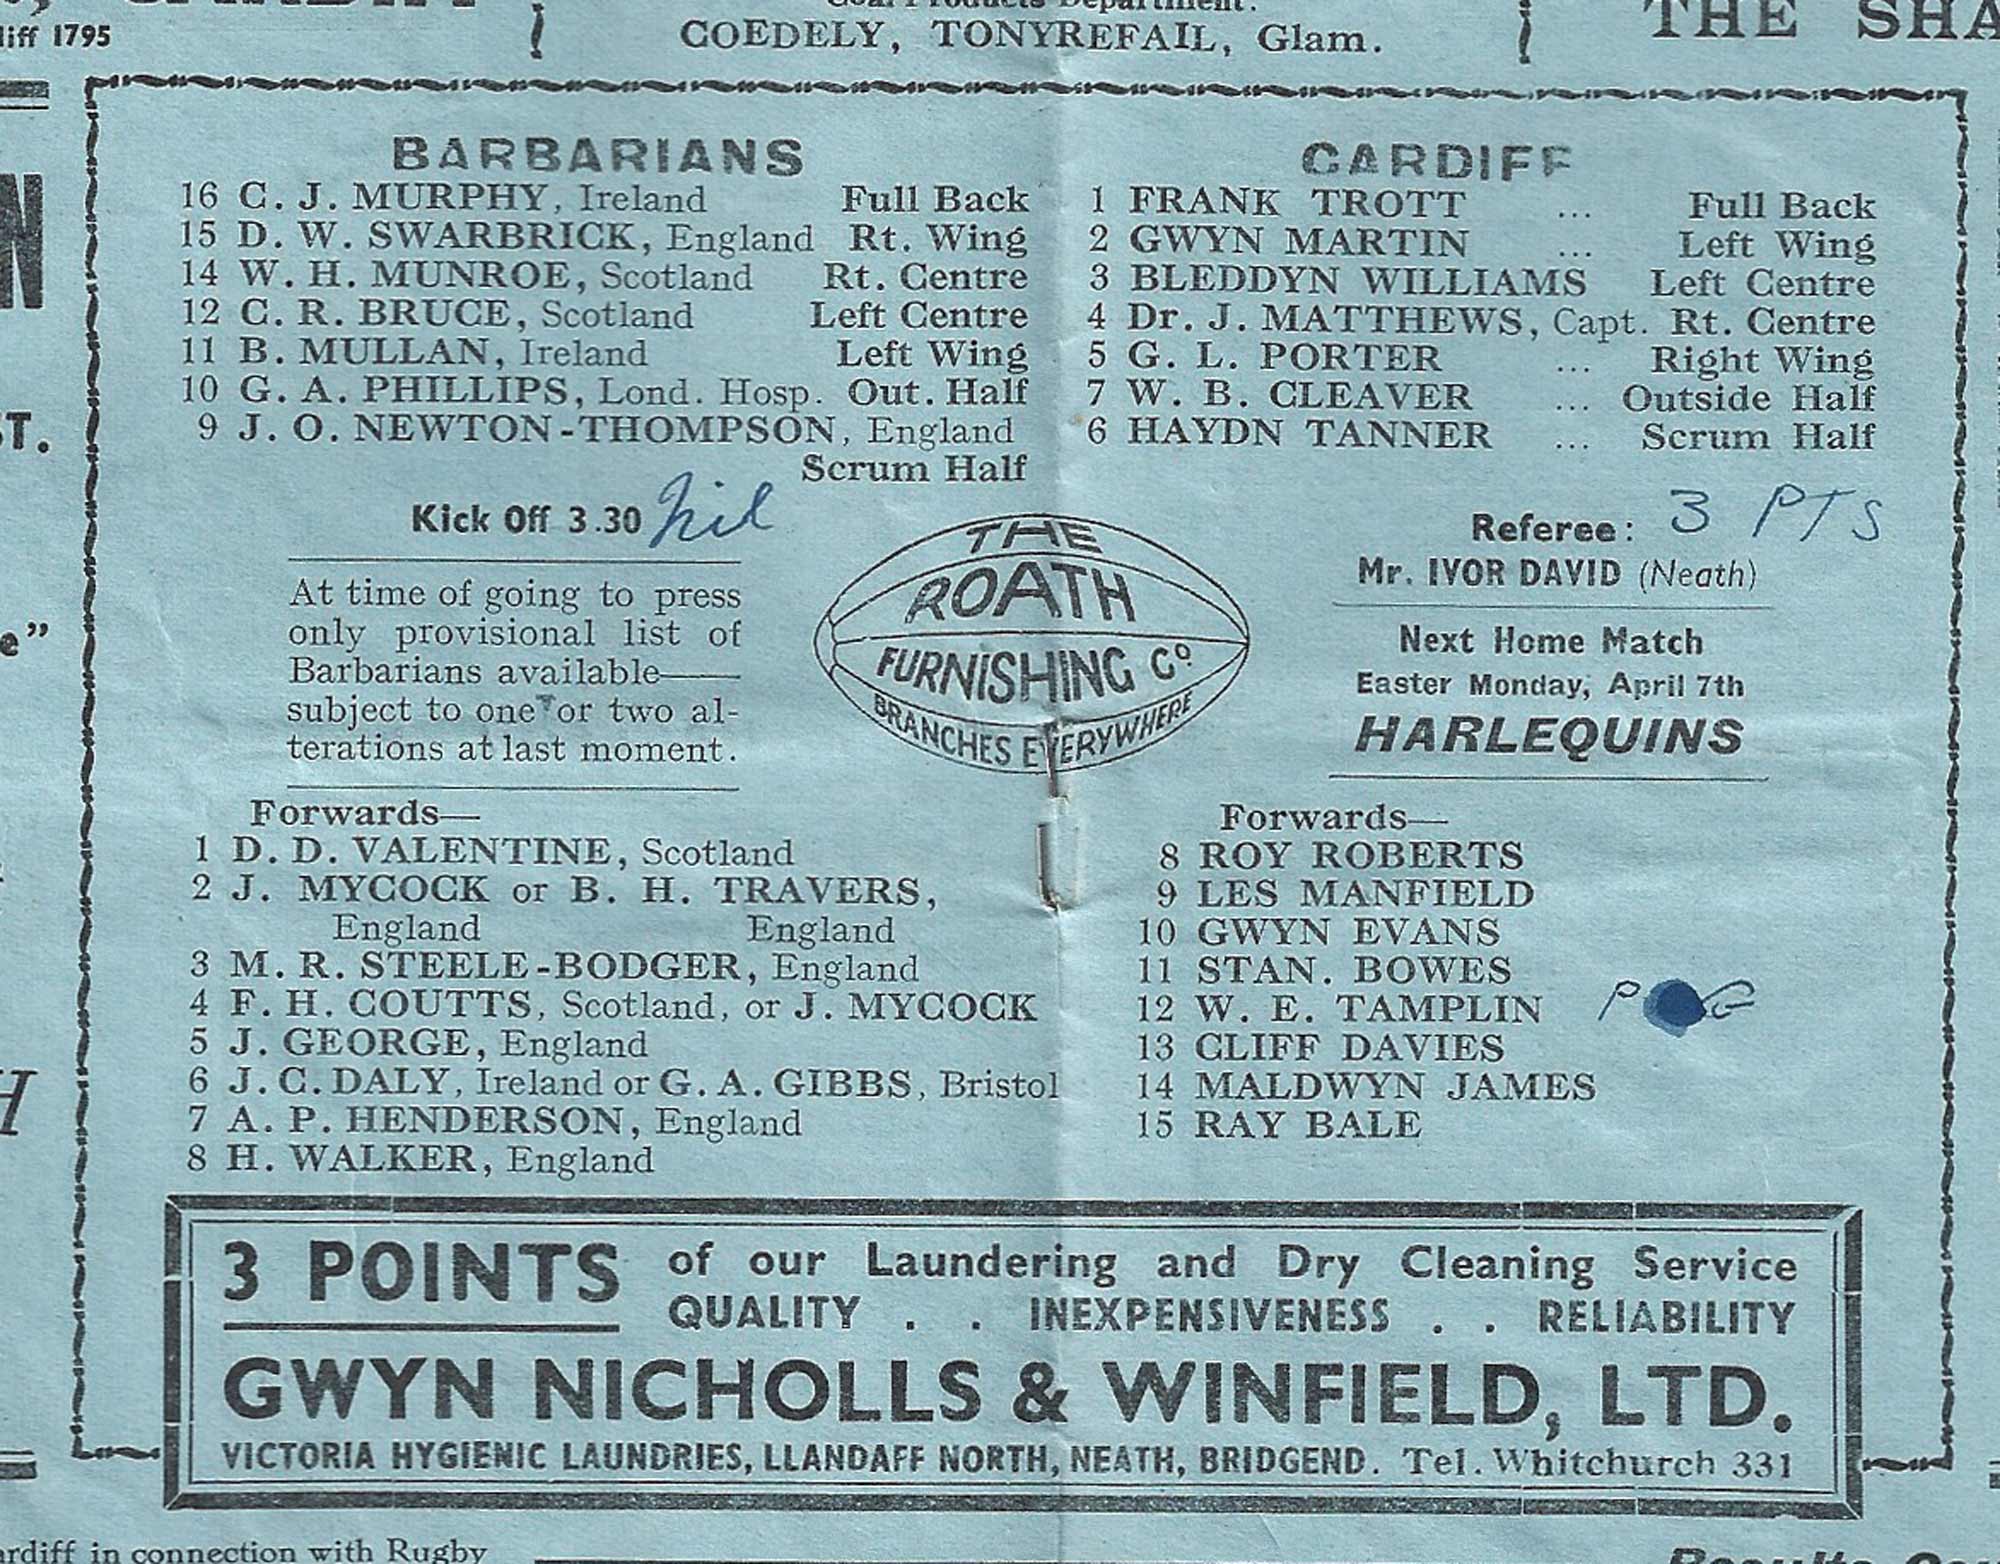 iff 1795
COEDELY, TONYREFAIL, Glam.
THE SHA
BARBARIANS
16 C. J. MURPHY, Ireland Full Back
15 D. W. SWARBRICK, England Rt. Wing
14 W. H. MUNROE, Scotland Rt. Centre
12 C. R. BRUCE, Scotland Left Centre
11 B. MULLAN, Ireland Left Wing
10 G. A. PHILLIPS, Lond. Hosp. Out. Half
9 J. O. NEWTON-THOMPSON, England
Scrum Half
CARDIFF
1 FRANK TROTT ... Full Back
2 GWYN MARTIN ... Left Wing
3 BLEDDYN WILLIAMS Left Centre
4 Dr. J. MATTHEWS, Capt. Rt. Centre
5 G. L. PORTER ... Right Wing
7 W. B. CLEAVER ... Outside Half
6 HAYDN TANNER ... Scrum Half
Kick Off 3.30 Nil
At time of going to press
only provisional list of
Barbarians available——
subject to one or two al-
terations at last moment.
THE
ROATH
FURNISHING Co.
BRANCHES EVERYWHERE
Referee: 3 PTS
Mr. IVOR DAVID (Neath)
Next Home Match
Easter Monday, April 7th
HARLEQUINS
Forwards—
1 D. D. VALENTINE, Scotland
2 J. MYCOCK or B. H. TRAVERS,
England England
3 M. R. STEELE-BODGER, England
4 F. H. COUTTS, Scotland, or J. MYCOCK
5 J. GEORGE, England
6 J. C. DALY, Ireland or G. A. GIBBS, Bristol
7 A. P. HENDERSON, England
8 H. WALKER, England
Forwards—
8 ROY ROBERTS
9 LES MANFIELD
10 GWYN EVANS
11 STAN. BOWES
12 W. E. TAMPLIN P G
13 CLIFF DAVIES
14 MALDWYN JAMES
15 RAY BALE
3 POINTS of our Laundering and Dry Cleaning Service
QUALITY . . INEXPENSIVENESS . . RELIABILITY
GWYN NICHOLLS & WINFIELD, LTD.
VICTORIA HYGIENIC LAUNDRIES, LLANDAFF NORTH, NEATH, BRIDGEND. Tel. Whitchurch 331
ardiff in connection with Rugby